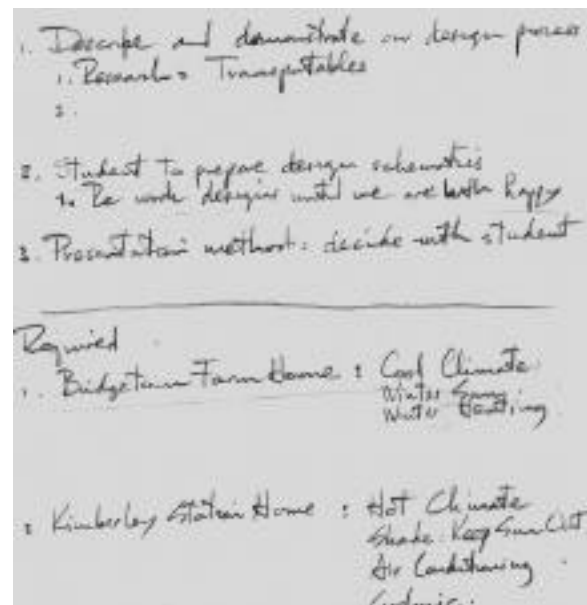 1. Describe and demonstrate our design process
1. Research: Transportables
2.
2. Student to prepare design schematics
1. Re work designs until we are both happy
3. Presentation method: decide with student
Required
1. Bridgetown Farm Home : Cool Climate
Winter Sun
Winter Heating
2 Kimberley Station Home : Hot Climate
Shade. Keep Sun Out
Air Conditioning